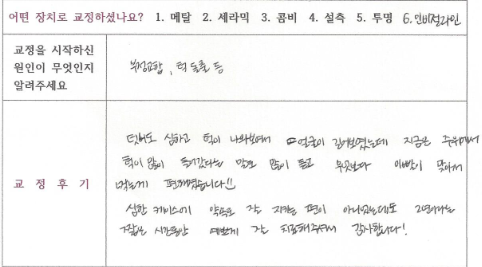 어떤 장치로 교정하셨나요? 1. 메탈 2. 세라믹 3. 콤비 4. 설측 5. 투명 6. 인비절라인
교정을 시작하신
원인이 무엇인지
알려주세요
부정교합, 턱 돌출 등
교 정 후 기
덧니도 심하고 턱이 나와보여서 얼굴이 길어보였는데 지금은 주위에서
턱이 많이 들어갔다는 말도 많이 듣고 무엇보다 이빨이 맞아서
먹는게 편해졌습니다!!
심한 케이스에 약속도 잘 지키는 편이 아니였는데도 2년이라는
짧은 시간동안 예쁘게 잘 치료해주셔서 감사합니다!